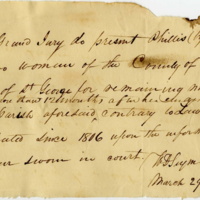 Grand Jury do present Phillis (
woman of the County of
of St George for remaining mo
than twelve months, after her eman
Parish aforesaid contrary to law
ated since 1806 upon the infor
sworn in court.
March 29